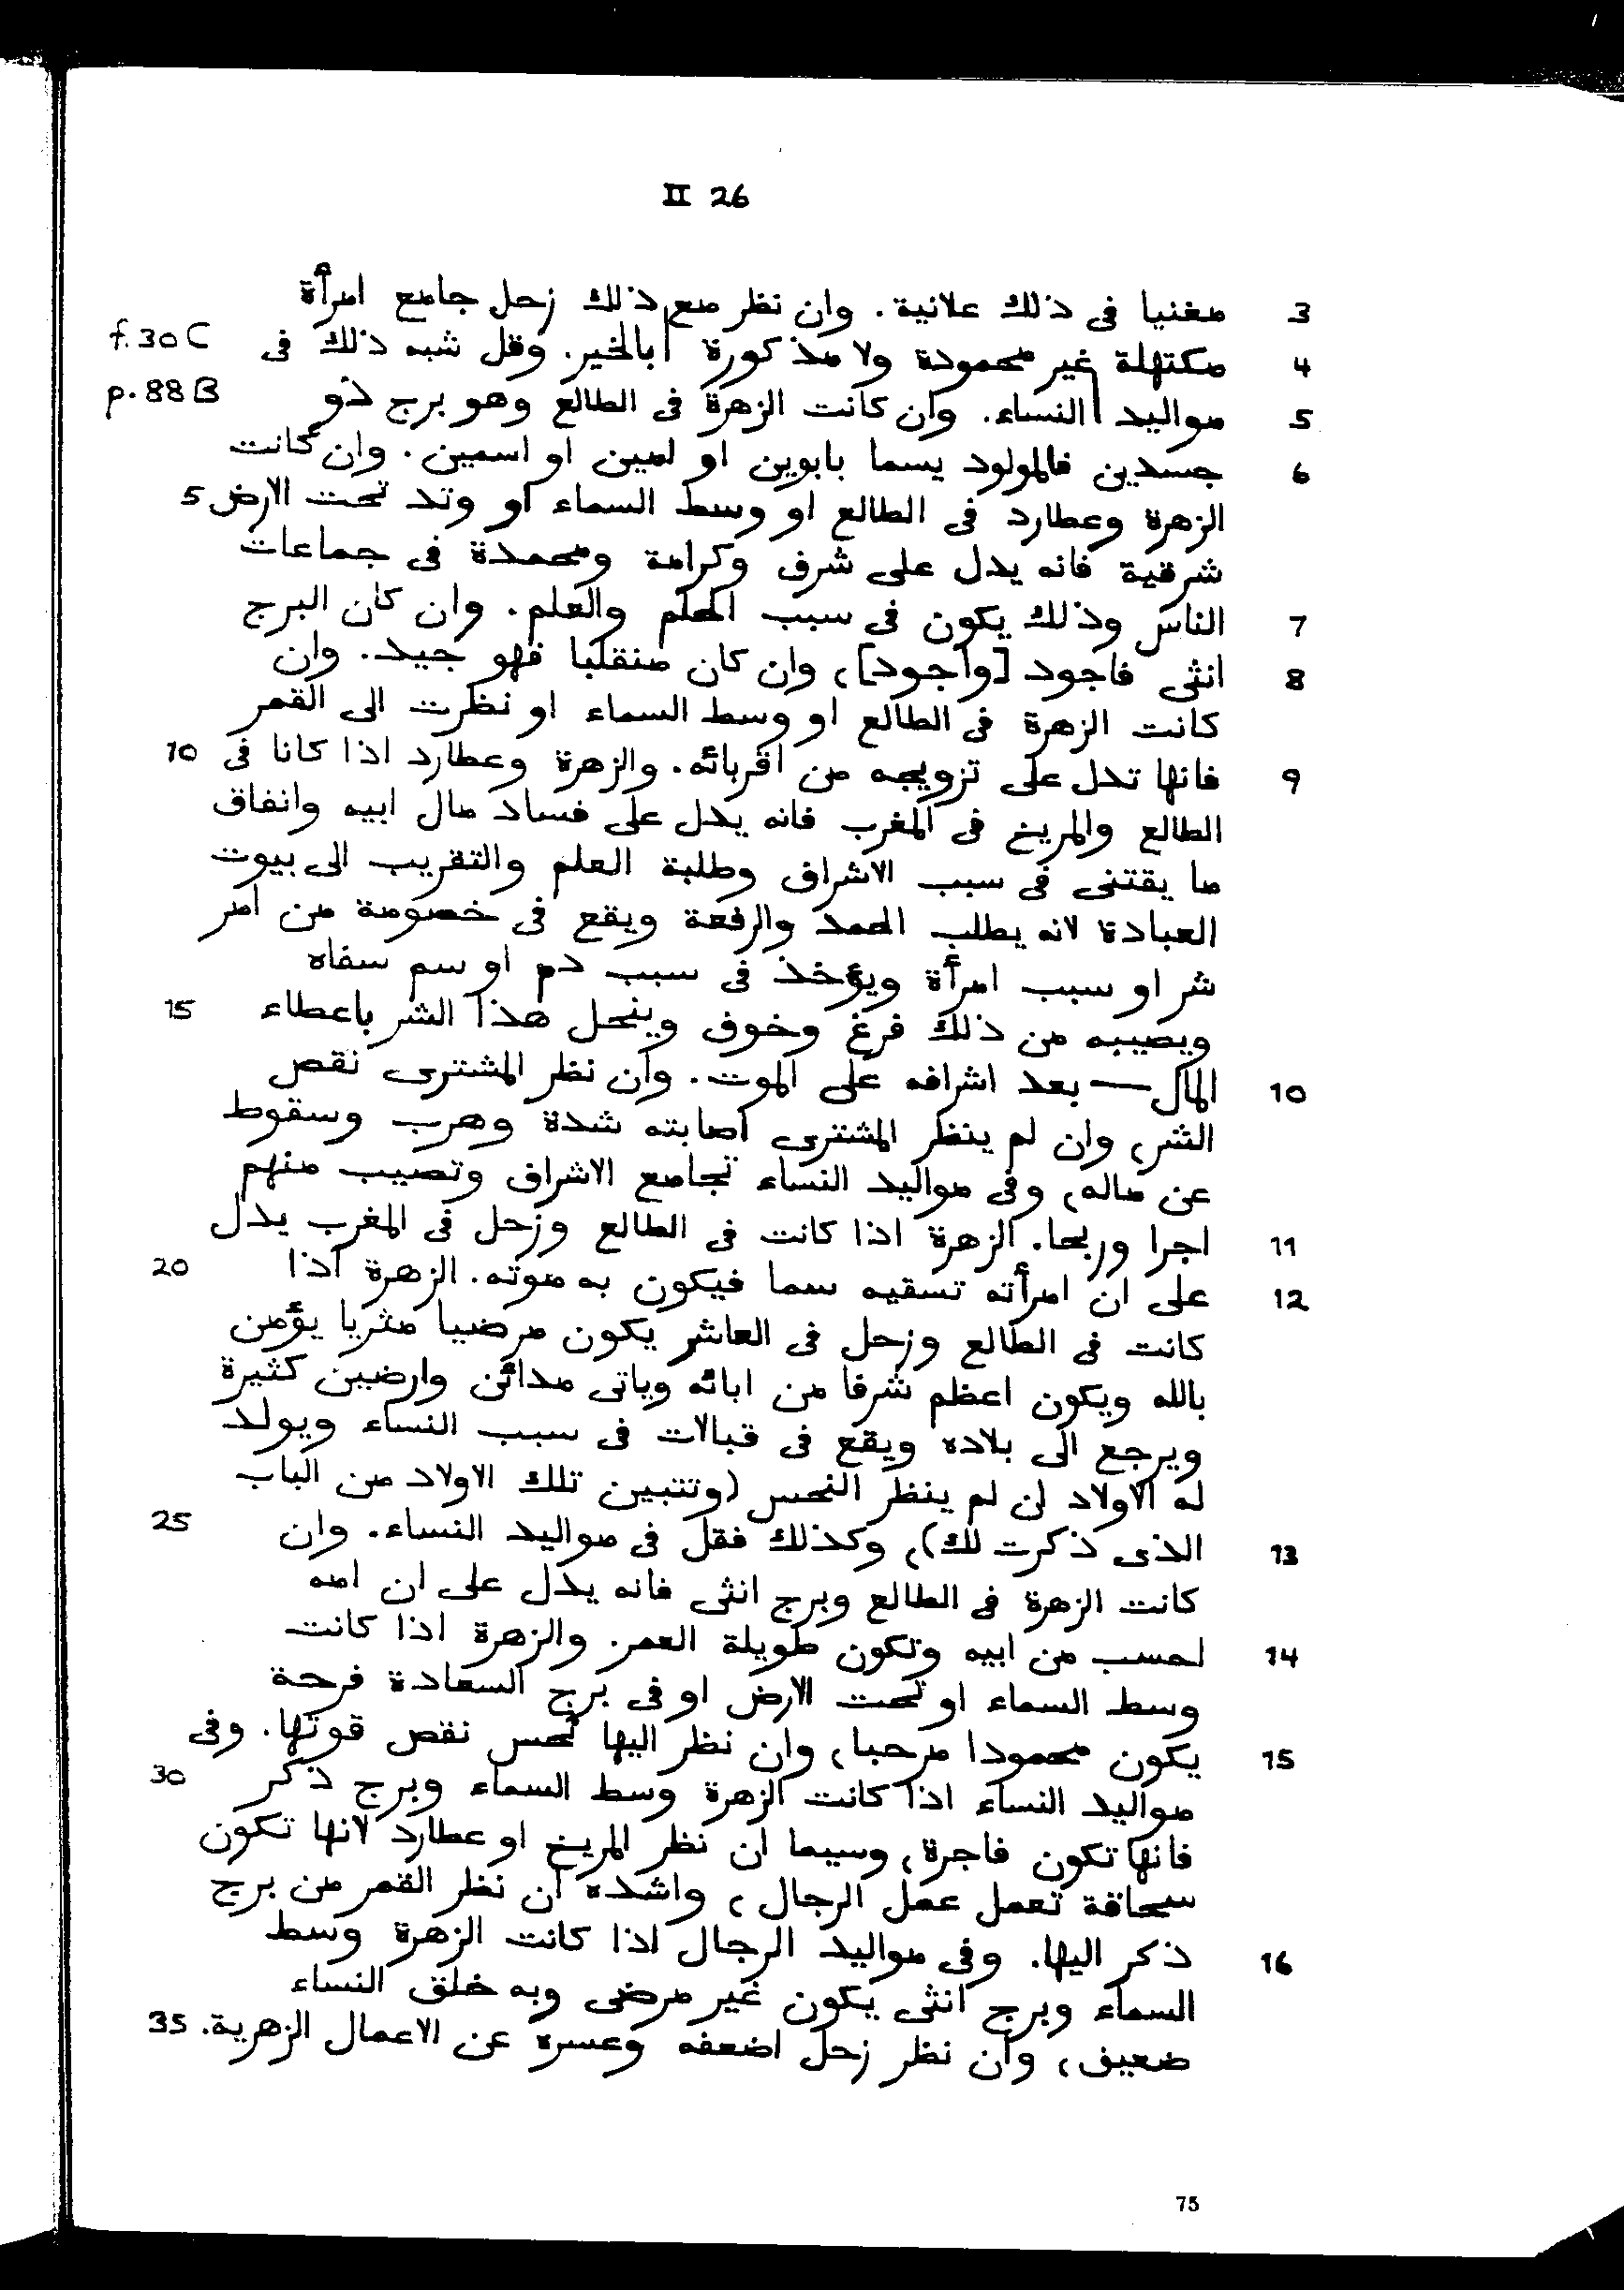 II 26
3 مغنيا فى ذلك علانية. وان نظر مع ذلك زحل جامع امرأة
4 مكتهلة غير محمودة ولا مذكورة | بالخير. وقل شبه ذلك فى f. 30 C
5 مواليد | النساء. وان كانت الزهرة فى الطالع وهو برج ذو p. 88 B
6 جسدين فالمولود يسما بابوين او لمين او اسمين. وان كانت
الزهرة وعطارد فى الطالع او وسط السماء او وتد تحت الارض 5
شرقية فانه يدل على شرف وكرامة ومحمدة فى جماعات
7 الناس وذلك يكون فى سبب الحلم والعلم. وان كان البرج
8 انثى فاجود [واجود]، وان كان منقلبا فهو جيد. وان
كانت الزهرة فى الطالع او وسط السماء او نظرت الى القمر
9 فانها تدل على تزويجه من اقربائه. والزهرة وعطارد اذا كانا فى 10
الطالع والمريخ فى المغرب فانه يدل على فساد مال ابيه وانفاق
ما يقتنى فى سبب الاشراف وطلبة العلم والتقريب الى بيوت
العبادة لانه يطلب الحمد والرفعة ويقع فى خصومة من امر
شر او سبب امرأة ويؤخذ فى سبب دم او سم سفاه
ويصيبه من ذلك فرغ وخوف وينحل هذا الشر باعطاء 15
10 المال — بعد اشرافه على الموت. وان نظر المشترى نقص
الشر، وان لم ينظر المشترى اصابته شدة وهرب وسقوط
عن ماله، وفى مواليد النساء تجامع الاشراف وتصيب منهم
11 اجرا وربحا. الزهرة اذا كانت فى الطالع وزحل فى المغرب يدل
12 على ان امرأته تسقيه سما فيكون به موته. الزهرة اذا 20
كانت فى الطالع وزحل فى العاشر يكون مرضيا مثريا يؤمن
بالله ويكون اعظم شرفا من ابائه وياتى مدائن وارضين كثيرة
ويرجع الى بلاده ويقع فى قبالات فى سبب النساء ويولد
له الاولاد ان لم ينظر النحس (وتتبين تلك الاولاد من الباب
13 الذى ذكرت لك)، وكذلك فقل فى مواليد النساء. وان 25
كانت الزهرة فى الطالع وبرج انثى فانه يدل على ان امه
14 احسب من ابيه وتكون طويلة العمر. والزهرة اذا كانت
وسط السماء او تحت الارض او فى برج السعادة فرحة
15 يكون محمودا مرحبا، وان نظر اليها نحس نقص قوتها. وفى
مواليد النساء اذا كانت الزهرة وسط السماء وبرج ذكر 30
فانها تكون فاجرة، وسيما ان نظر المريخ او عطارد لانها تكون
سحاقة تعمل عمل الرجال، واشده ان نظر القمر من برج
16 ذكر اليها. وفى مواليد الرجال اذا كانت الزهرة وسط
السماء وبرج انثى يكون غير مرضى وبه خلق النساء
ضعيف، وان نظر زحل اضعفه وعسره عن الاعمال الزهرية. 35
75